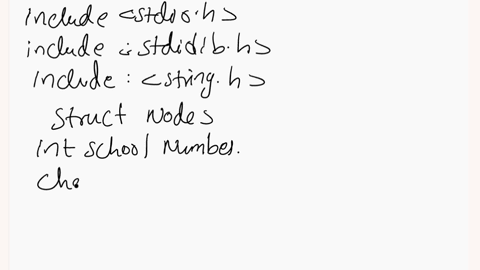 include <stdio.h>
include : stdidib.h>
include : <string.h>
struct nodes
int school number.
cha